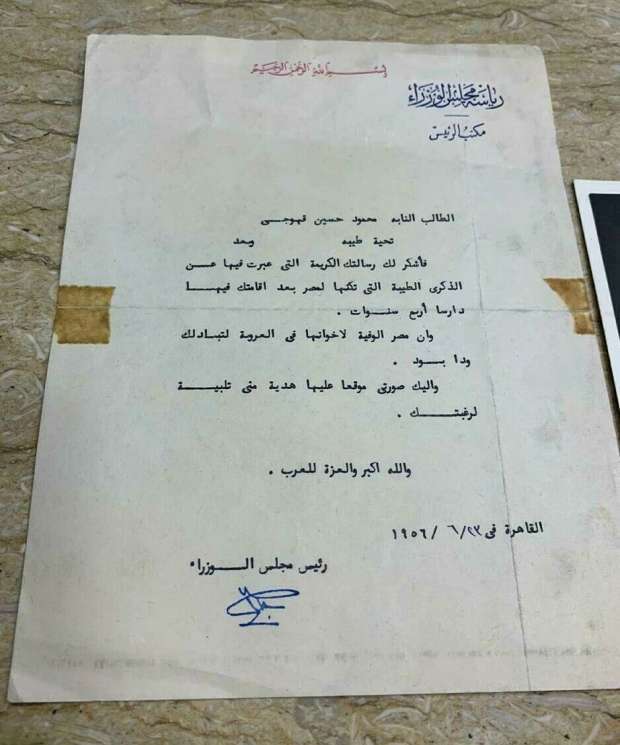 بسم الله الرحمن الرحيم
رياسة مجلس الوزراء
مكتب الرئيس
الطالب النابه محمود حسين قهوجى
تحية طيبه وبعد
فأشكر لك رسالتك الكريمة التى عبرت فيها عن
الذكرى الطيبة التى تكنها لمصر بعد اقامتك فيها
دارسا أربع سنوات .
وان مصر الوفية لاخوانها فى العروبة لتبادلك
ودا بود .
واليك صورتى موقعا عليها هدية منى تلبية
لرغبتك .
والله اكبر والعزة للعرب .
القاهرة فى ٢٣/ ٦/ ١٩٥٦
رئيس مجلس الوزراء